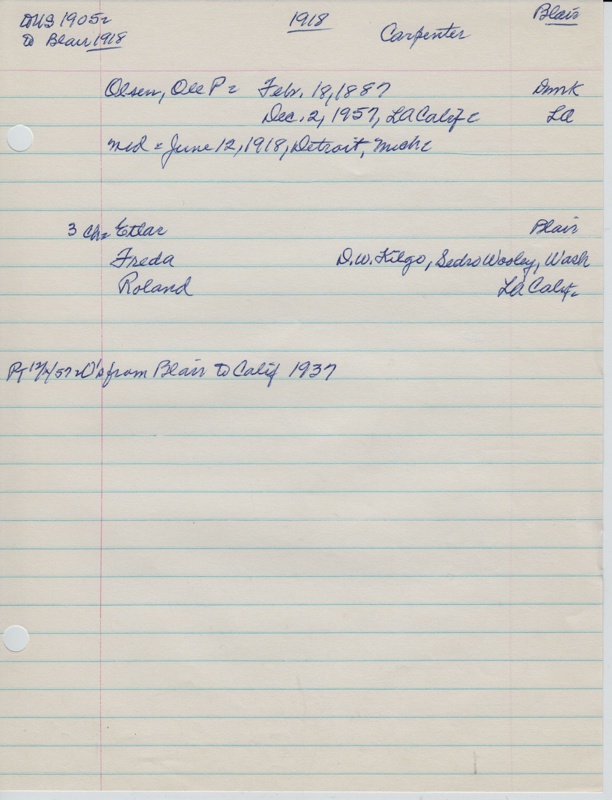 TUS 1905 1918 Blair
to Blair 1918 Carpenter
Olsen, Ole P = Febr. 18, 1887 Dmk
Dec. 2, 1957, LA Calif LA
Med = June 12, 1918, Detroit, Mich
3 Ch = Etlar Blair
Freda D.W. Kilgo, Sedro Wooley, Wash
Roland LA Calif
PT 12/ /57 = O's from Blair to Calif 1937